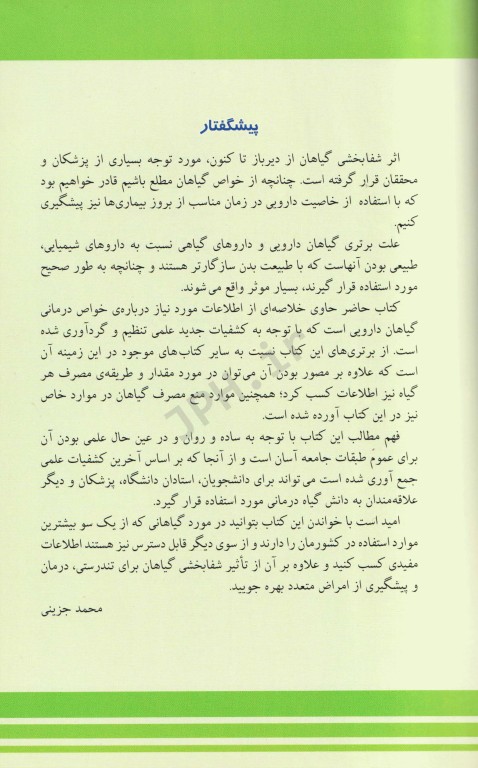 پیشگفتار
اثر شفابخشی گیاهان از دیرباز تا کنون، مورد توجه بسیاری از پزشکان و
محققان قرار گرفته است. چنانچه از خواص گیاهان مطلع باشیم قادر خواهیم بود
که با استفاده از خاصیت دارویی در زمان مناسب از بروز بیماری‌ها نیز پیشگیری
کنیم.
علت برتری گیاهان دارویی و داروهای گیاهی نسبت به داروهای شیمیایی،
طبیعی بودن آنهاست که با طبیعت بدن سازگارتر هستند و چنانچه به طور صحیح
مورد استفاده قرار گیرند، بسیار موثر واقع می‌شوند.
کتاب حاضر حاوی خلاصه‌ای از اطلاعات مورد نیاز درباره‌ی خواص درمانی
گیاهان دارویی است که با توجه به کشفیات جدید علمی تنظیم و گردآوری شده
است. از برتری‌های این کتاب نسبت به سایر کتاب‌های موجود در این زمینه آن
است که علاوه بر مصور بودن آن می‌توان در مورد مقدار و طریقه‌ی مصرف هر
گیاه نیز اطلاعات کسب کرد؛ همچنین موارد منع مصرف گیاهان در موارد خاص
نیز در این کتاب آورده شده است.
فهم مطالب این کتاب با توجه به ساده و روان و در عین حال علمی بودن آن
برای عموم طبقات جامعه آسان است و از آنجا که بر اساس آخرین کشفیات علمی
جمع آوری شده است می‌تواند برای دانشجویان، استادان دانشگاه، پزشکان و دیگر
علاقه‌مندان به دانش گیاه درمانی مورد استفاده قرار گیرد.
امید است با خواندن این کتاب بتوانید در مورد گیاهانی که از یک سو بیشترین
موارد استفاده در کشورمان را دارند و از سوی دیگر قابل دسترس نیز هستند اطلاعات
مفیدی کسب کنید و علاوه بر آن از تأثیر شفابخشی گیاهان برای تندرستی، درمان
و پیشگیری از امراض متعدد بهره جویید.
محمد جزینی
JPH.ir